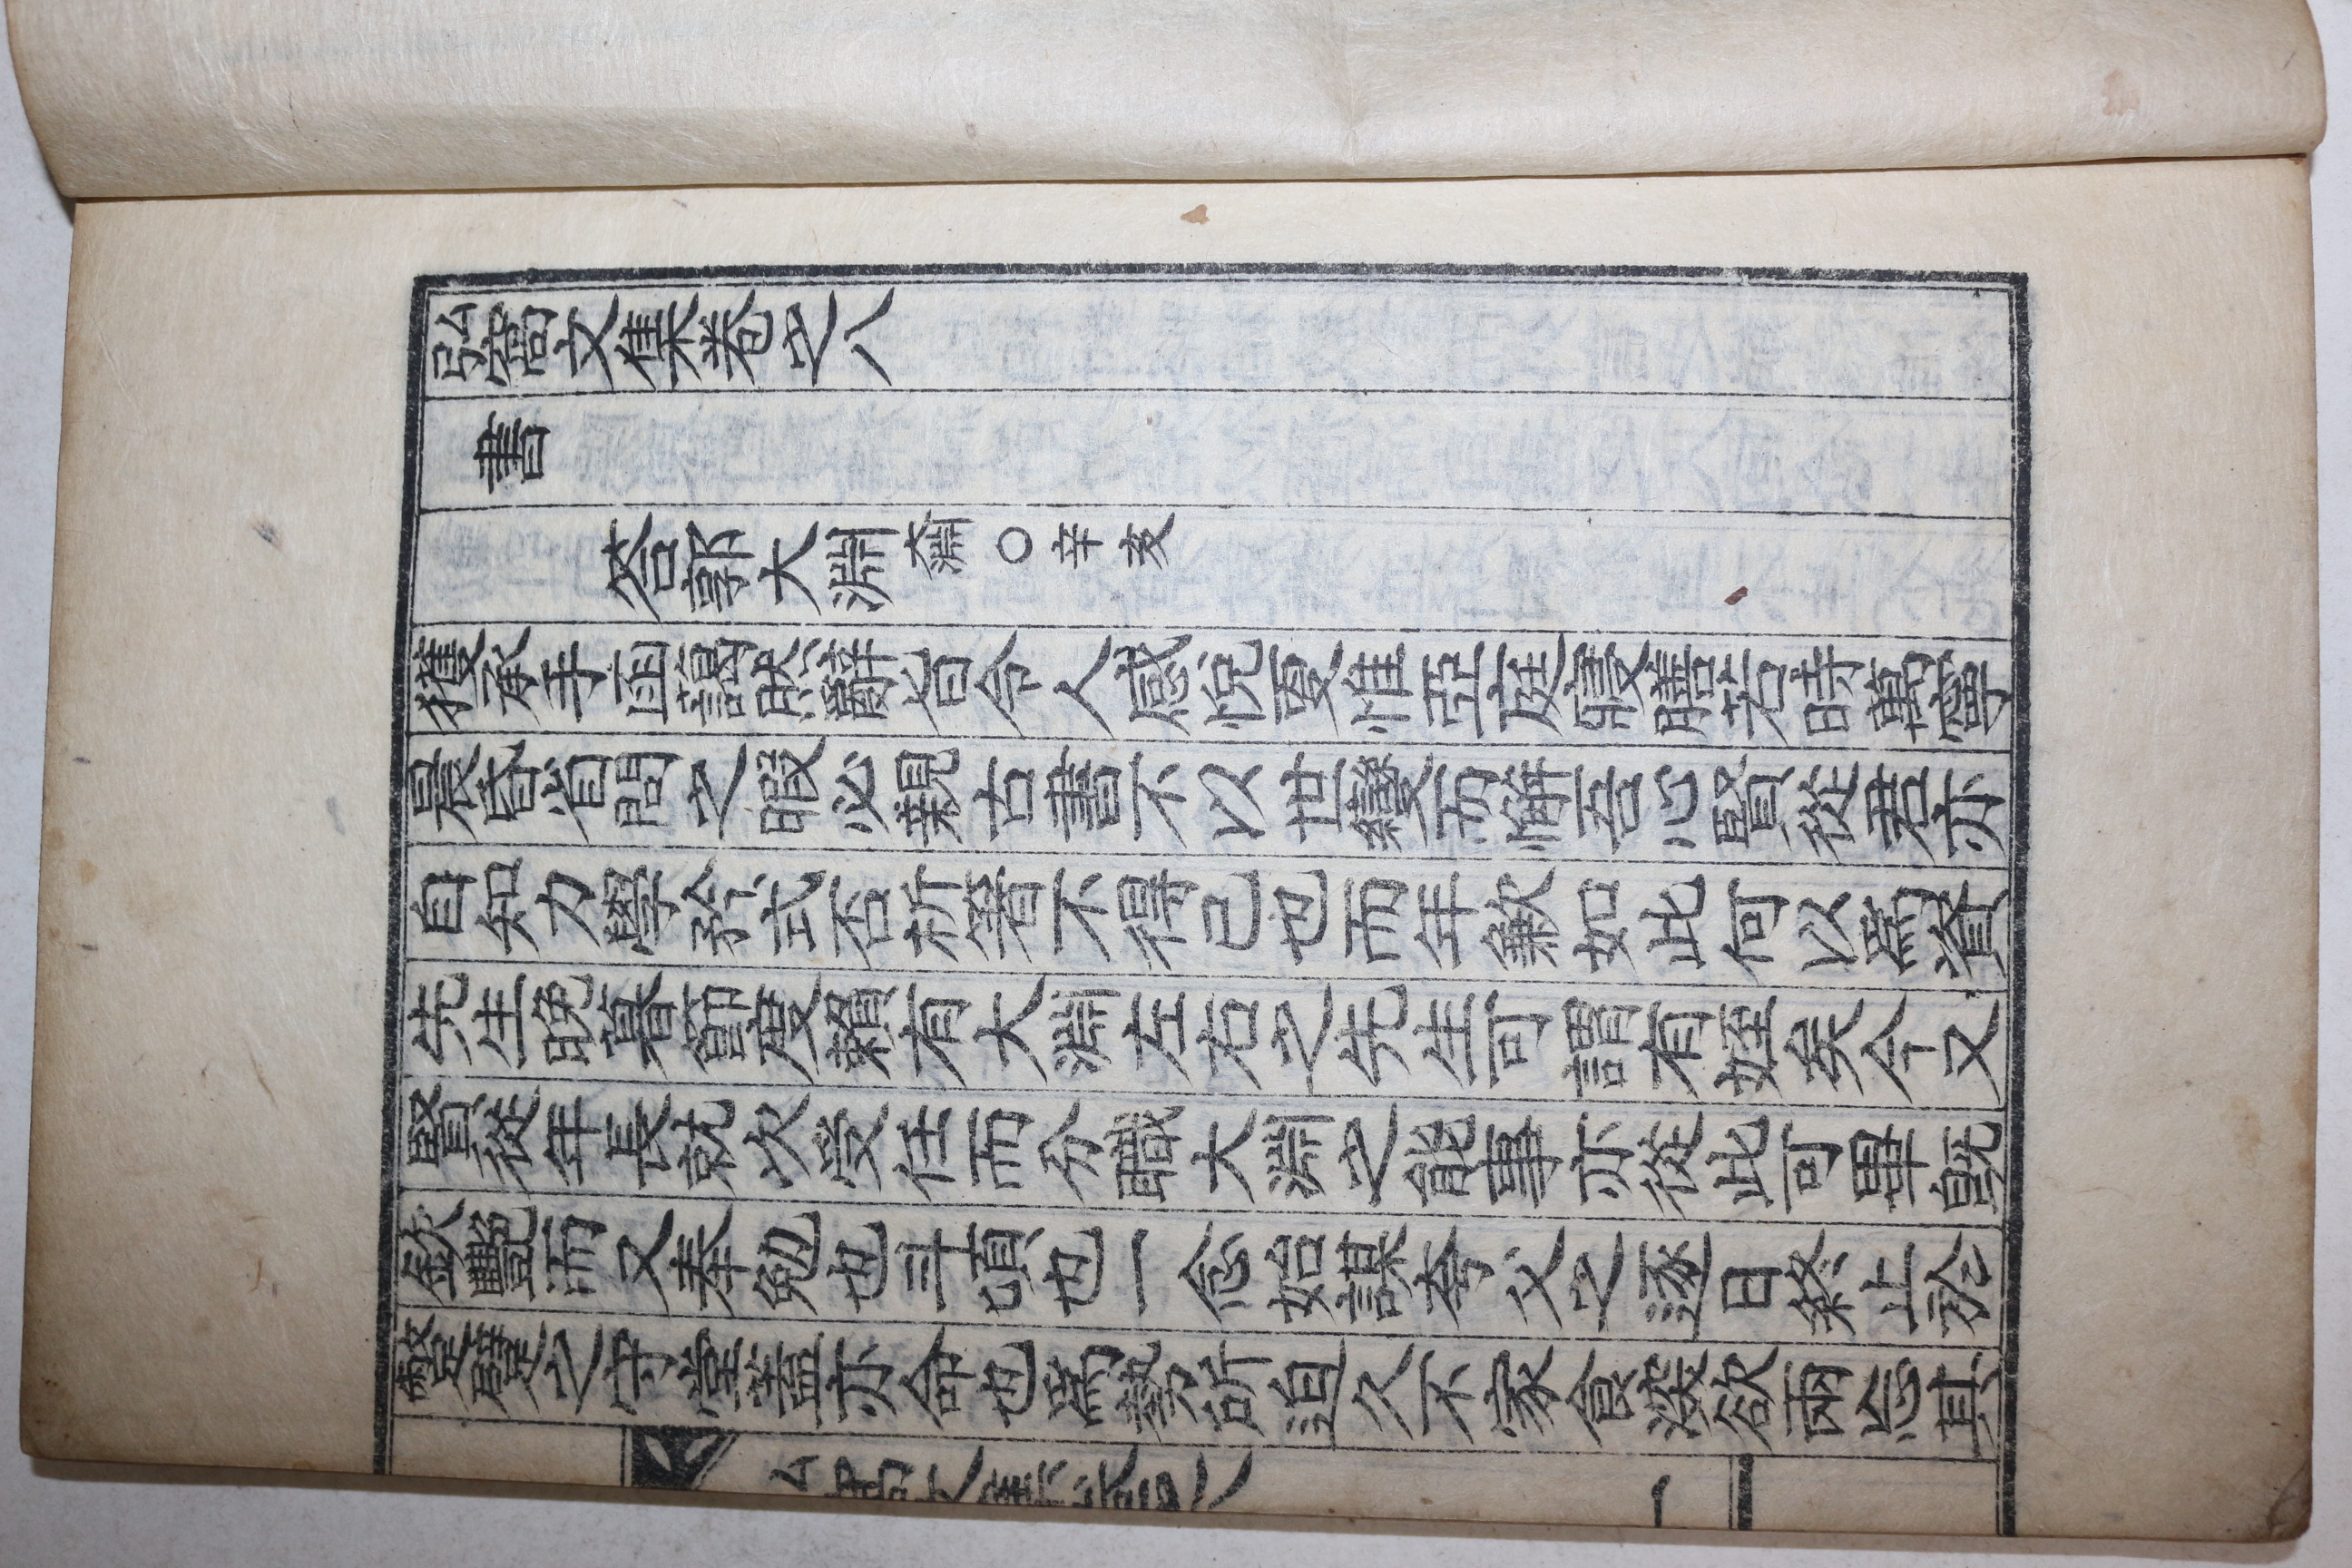 弘窩文集卷之八
書
答郭大淵 大淵○辛亥
獲承手函藹然辭旨令人感悅更惟亞庭寢膳若時萬寧
晨昏省問之暇必親古書不以世變而懈吾心賢從君亦
自知力學矜式否析箸不得已也而年歉如此何以爲資
先生晩暮節度賴有大淵左右之先生可謂有姪矣今又
賢從年長就次受任而分職大淵之能事亦從此可畢旣
欽艶而又奉勉也斗頃也一念始謀夸父之逐日終止於
蹩躠之守堂蓋亦命也爲勢所迫久不家食深欲兩忘其
弘窩文集卷之八
一